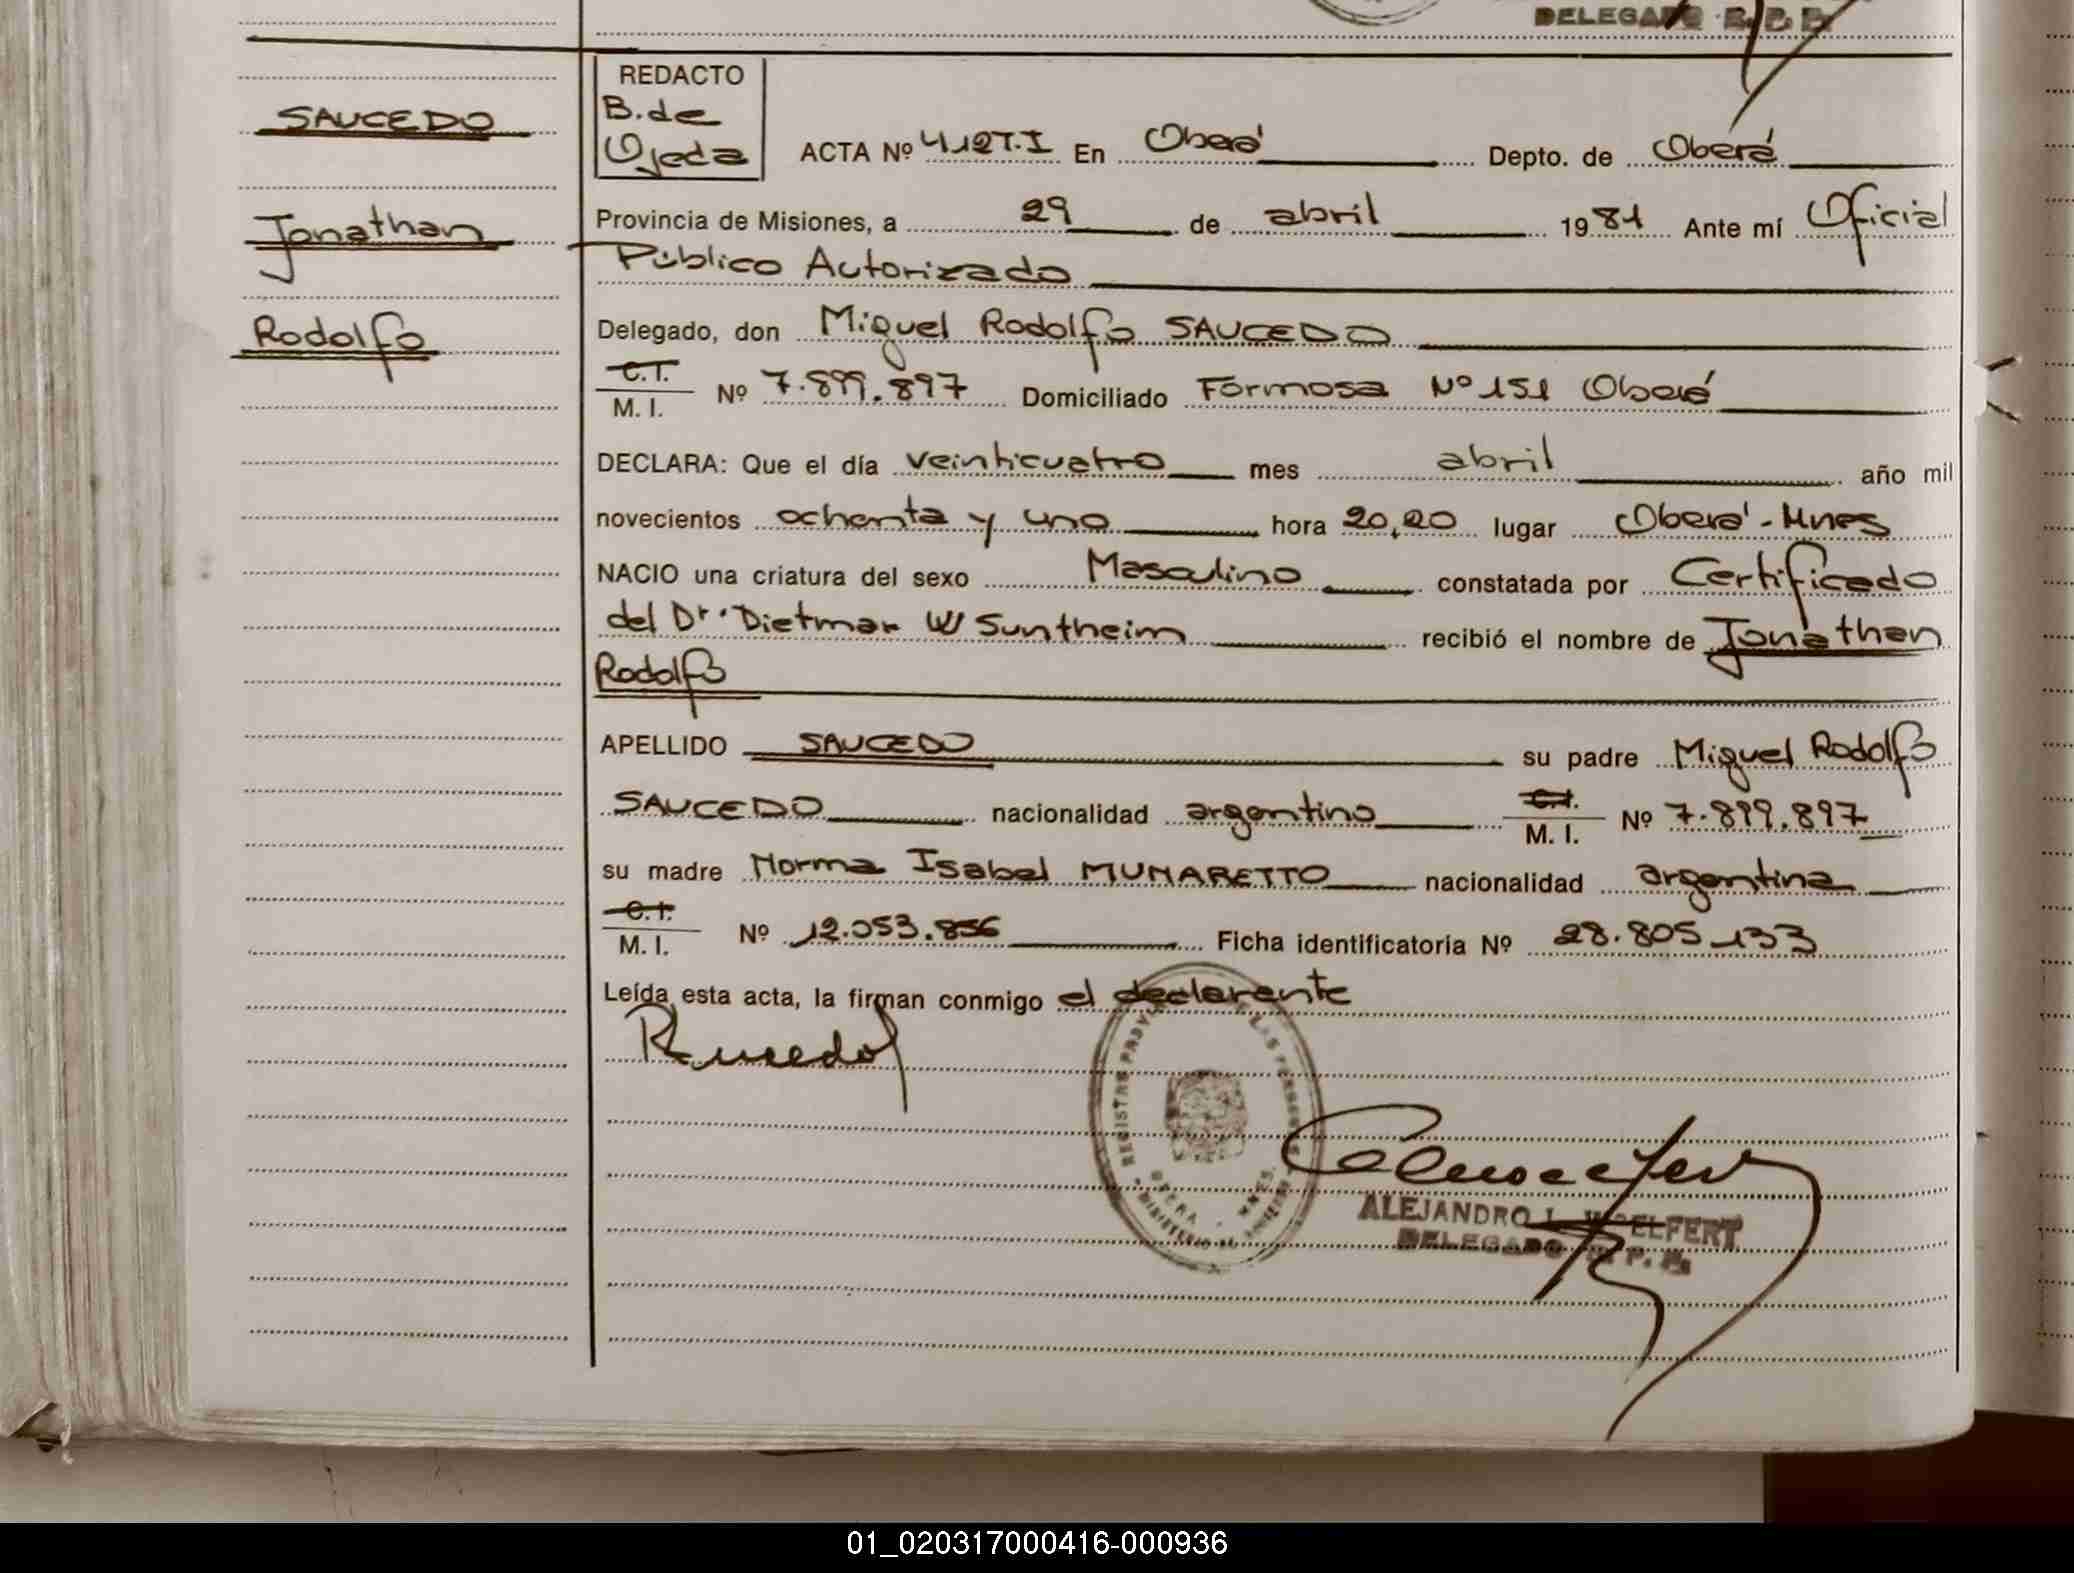 DELEGADO R. P. P.
REDACTO
B. de
Ojeda
SAUCEDO
Jonathan
Rodolfo
ACTA Nº 412T.I En Oberá Depto. de Oberá
Provincia de Misiones, a 29 de abril 1981 Ante mí Oficial
Público Autorizado
Delegado, don Miguel Rodolfo SAUCEDO
C.I.
M. I. Nº 7.899.897 Domiciliado Formosa Nº 151 Oberá
DECLARA: Que el día veinticuatro mes abril año mil
novecientos ochenta y uno hora 20,20 lugar Oberá - Mnes
NACIO una criatura del sexo Masculino constatada por Certificado
del Dr. Dietmar W Suntheim recibió el nombre de Jonathan
Rodolfo
APELLIDO SAUCEDO su padre Miguel Rodolfo
SAUCEDO nacionalidad argentino C.I. M. I. Nº 7.899.897
su madre Norma Isabel MUNARETTO nacionalidad argentina
C.I.
M. I. Nº 12.053.856 Ficha identificatoria Nº 28.805.133
Leída esta acta, la firman conmigo el declarante
ALEJANDRO L. WOELFERT
DELEGADO R. P. P.
01_020317000416-000936